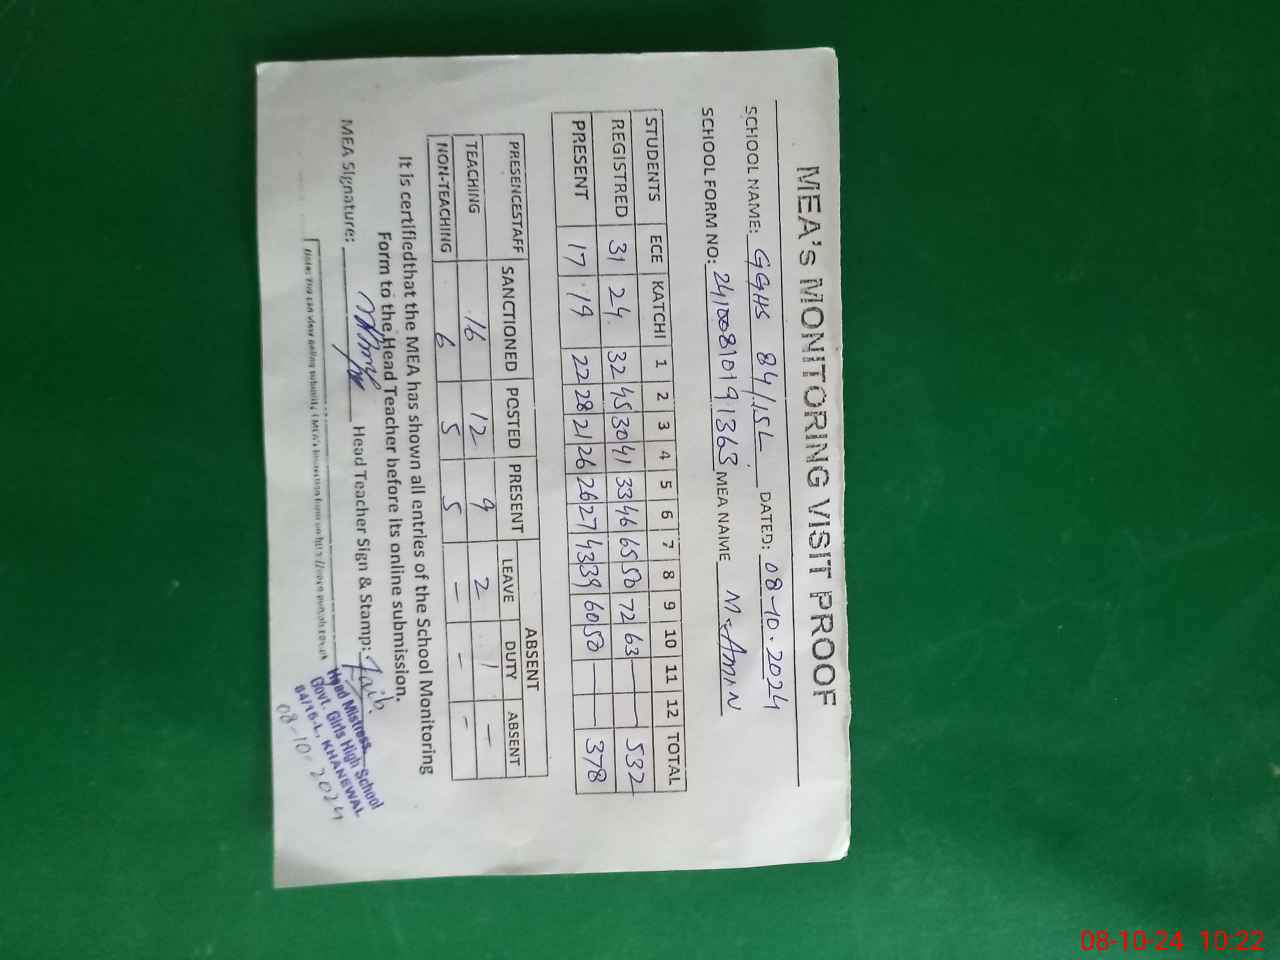 MEA's MONITORING VISIT PROOF
SCHOOL NAME: GGHS 84/15L DATED: 08-10-2024
SCHOOL FORM NO: 2410081019 1363 MEA NAME M. AMIN
STUDENTS ECE KATCHI 1 2 3 4 5 6 7 8 9 10 11 12 TOTAL
REGISTRED 31 24 32 45 30 41 33 46 65 50 72 63 — — 532
PRESENT 17 19 22 28 21 26 26 27 43 39 60 50 — — 378
PRESENCESTAFF SANCTIONED POSTED PRESENT ABSENT
LEAVE DUTY ABSENT
TEACHING 16 12 9 2 1 –
NON-TEACHING 6 5 5 – – –
It is certifiedthat the MEA has shown all entries of the School Monitoring
Form to the Head Teacher before its online submission.
MEA Signature: Head Teacher Sign & Stamp:
Head Mistress
Govt. Girls High School
84/15-L, KHANEWAL
08-10-2024
08-10-24 10:22